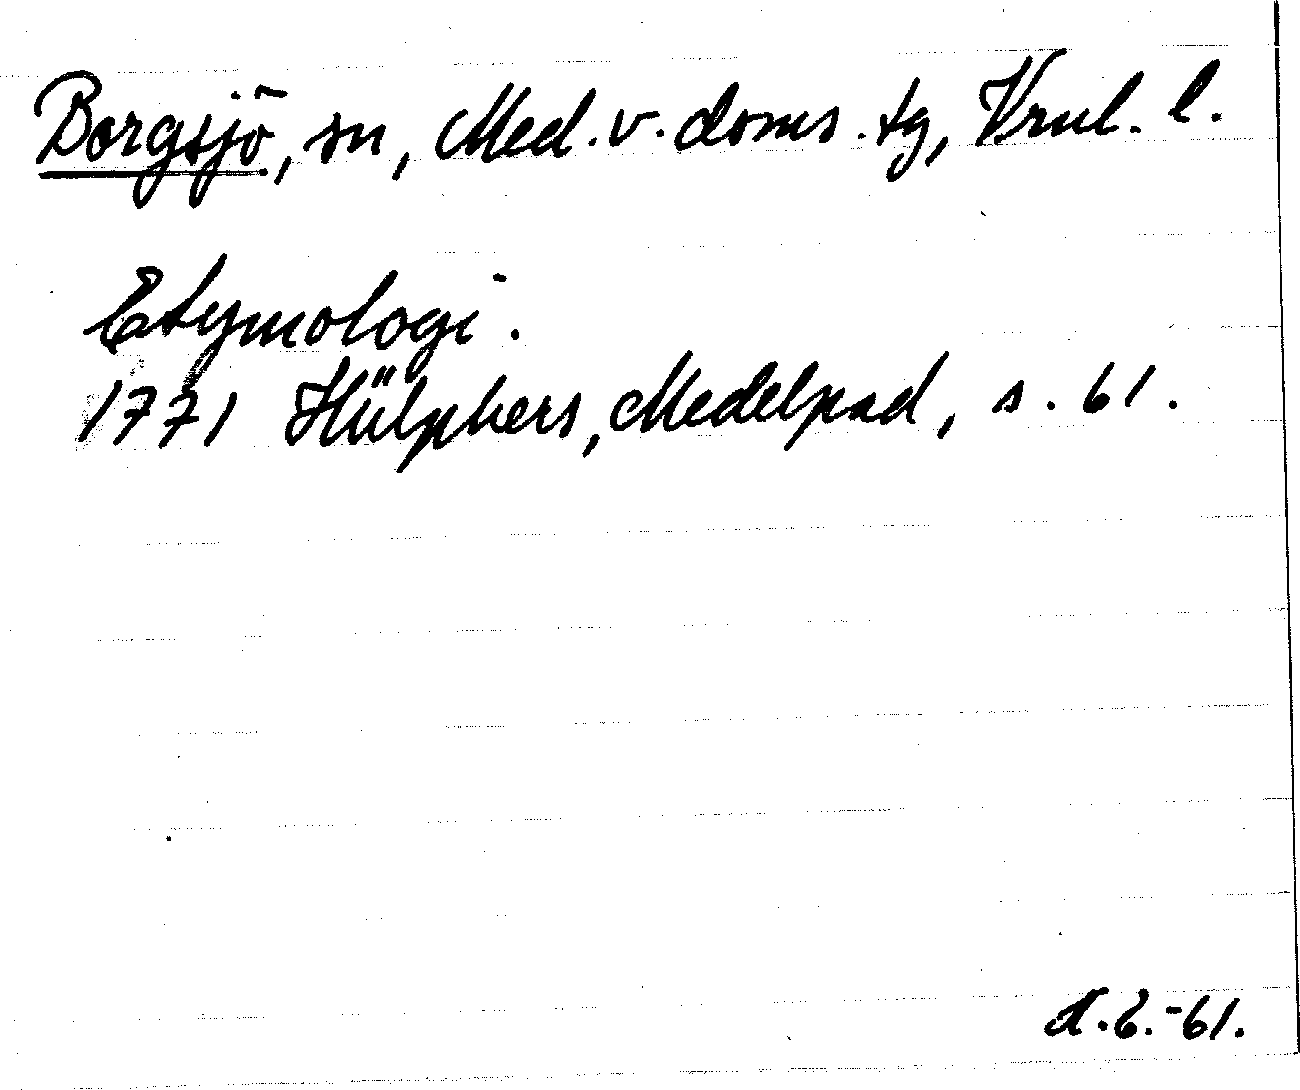 Borgsjö, sn, Med. v. doms. tg, Vrnl. l.
Etymologi.
1771 Hülphers, Medelpad, s. 61.
-61.